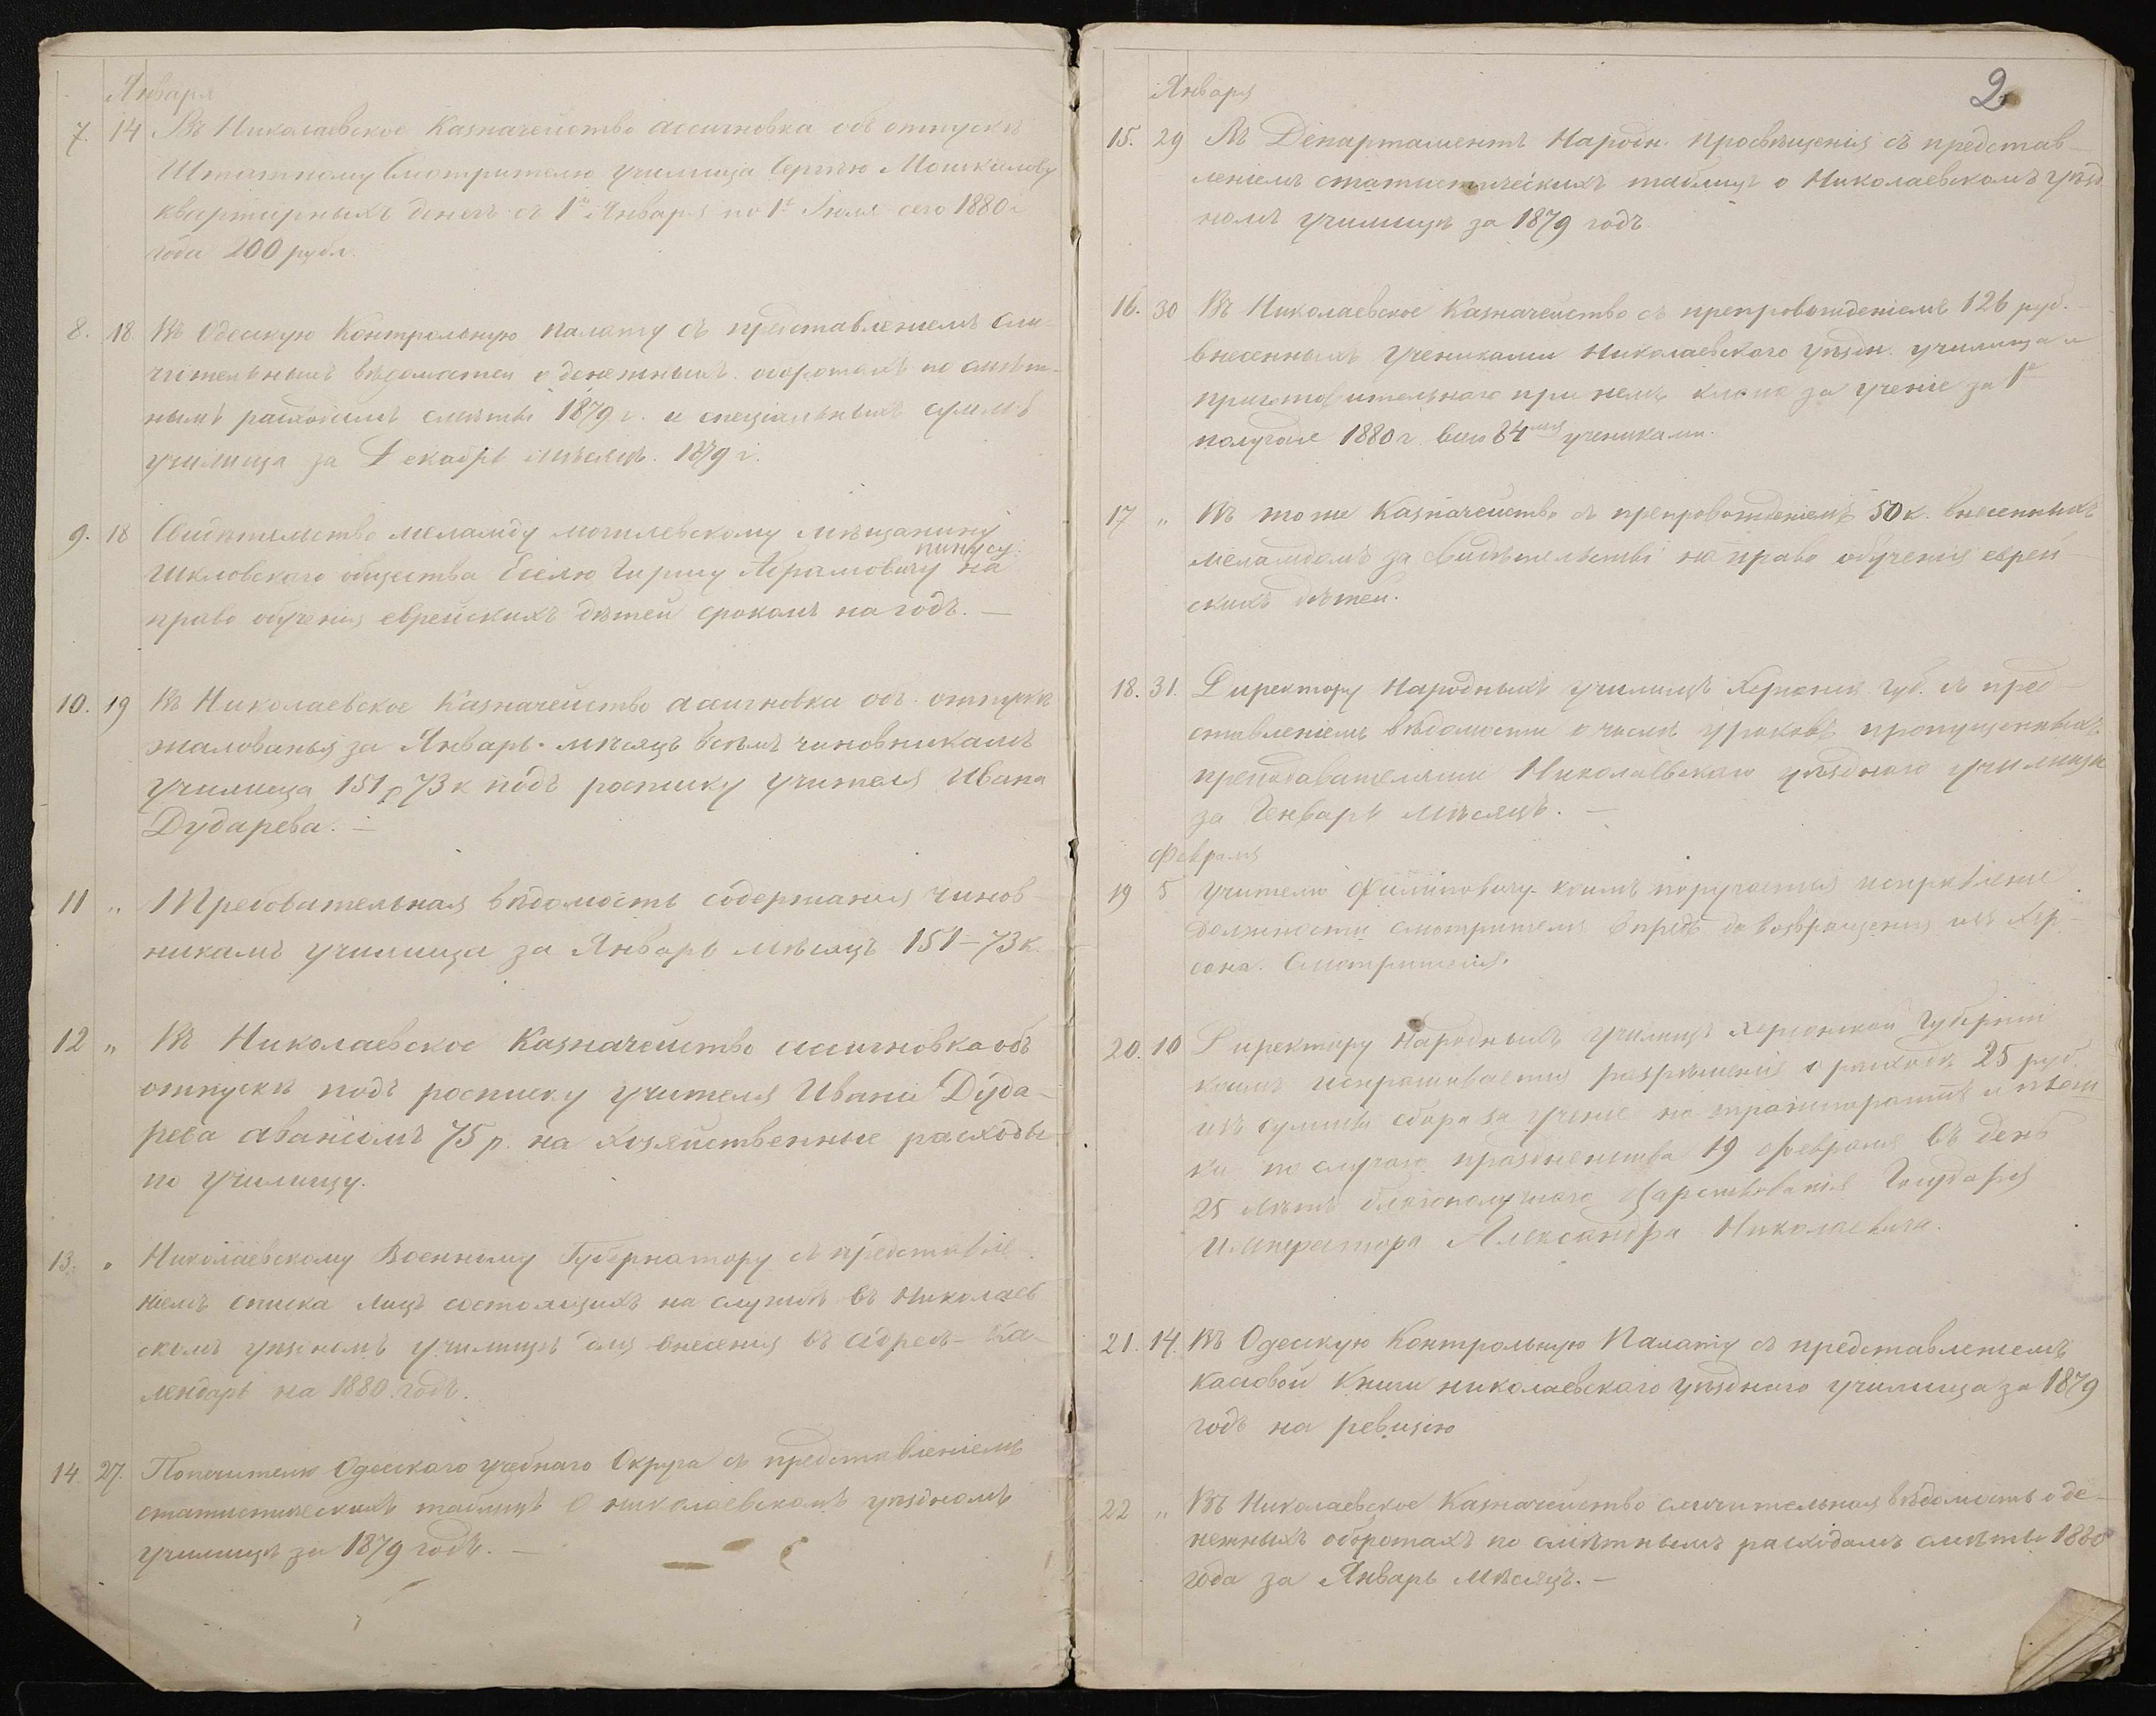 Января
7. 14 Въ Николаевское Казначейство ассигновка объ отпускѣ
Штатному Смотрителю училища Сергѣю Мошкалову
квартирныхъ денегъ съ 1го Января по 1е Іюля сего 1880
года 200 рубл.
8. 18. Въ Одесскую Контрольную палату съ представленіемъ сли-
чительныхъ вѣдомостей о денежныхъ оборотахъ по смѣт-
нымъ расходамъ смѣты 1879 г. и спеціальныхъ суммъ
училища за Декабрь мѣсяцъ 1879 г.
9. 18 Свидѣтельство меламду могилевскому мѣщанину
Шкловскаго общества Абрамовичу на
право обученія еврейскихъ дѣтей срокомъ на годъ. —
10. 19 Въ Николаевское Казначейство ассигновка объ отпускѣ
жалованья за Январь мѣсяцъ всѣмъ чиновникамъ
училища 151 р 73 к подъ росписку учителя Ивана
Дударева. —
11 „ Требовательная вѣдомость содержанія чинов
никамъ училища за Январь мѣсяцъ 151–73 к.
12 „ Въ Николаевское Казначейство ассигновка объ
отпускѣ подъ росписку учителя Ивана Дуда-
рева авансомъ 75 р. на хозяйственные расходы
по училищу.
13. „ Николаевскому Военному Губернатору съ представле-
ніемъ списка лицъ состоящихъ на службѣ въ Николаев
скомъ уѣздномъ училищѣ для внесенія въ Адресъ-Ка-
лендарь на 1880 годъ.
14. 27. Попечителю Одесскаго учебнаго Округа съ представленіемъ
статистическихъ таблицъ о николаевскомъ уѣздномъ
училищѣ за 1879 годъ. —
2
Января
15. 29 Въ Департаментъ Народн. просвѣщенія съ представ-
леніемъ статистическихъ таблицъ о Николаевскомъ уѣзд
номъ училищѣ за 1879 годъ
16. 30 Въ Николаевское Казначейство съ препровожденіемъ 126 руб.
внесенныхъ учениками Николаевскаго уѣздн. училища и
приготовительнаго при немъ класса за ученіе за 1е
полугодіе 1880 г. всего 84мя учениками.
17 „ Въ тоже Казначейство съ препровожденіемъ 50 к. внесенныхъ
меламдомъ за Свидѣтельство на право обученія еврей
скихъ дѣтей.
18. 31. Директору Народныхъ училищъ Херсонск. губ. съ пред-
ставленіемъ вѣдомости о числѣ уроковъ пропущенныхъ
преподавателями Николаевскаго уѣзднаго училища
за Генварь мѣсяцъ. —
Февраля
19 5 Учителю Филиповичу коимъ поручается исправленіе
должности смотрителя впредь до возвращенія изъ Хер-
сона Смотрителя.
20. 10 Директору Народныхъ училищъ Херсонской Губерніи
коимъ испрашивается разрѣшеніе о расходѣ 25 руб.
изъ суммы сбора за ученіе на
ки по случаю празднества 19 февраля въ день
25 лѣтъ благополучнаго Царствованія Государя
Императора Александра Николаевича.
21. 14. Въ Одесскую Контрольную Палату съ представленіемъ
кассовой Книги николаевскаго уѣзднаго училища за 1879
годъ на ревизію
22 „ Въ Николаевское Казначейство сличительная вѣдомость о де-
нежныхъ оборотахъ по смѣтнымъ расходамъ смѣты 1880
года за Январь мѣсяцъ. —